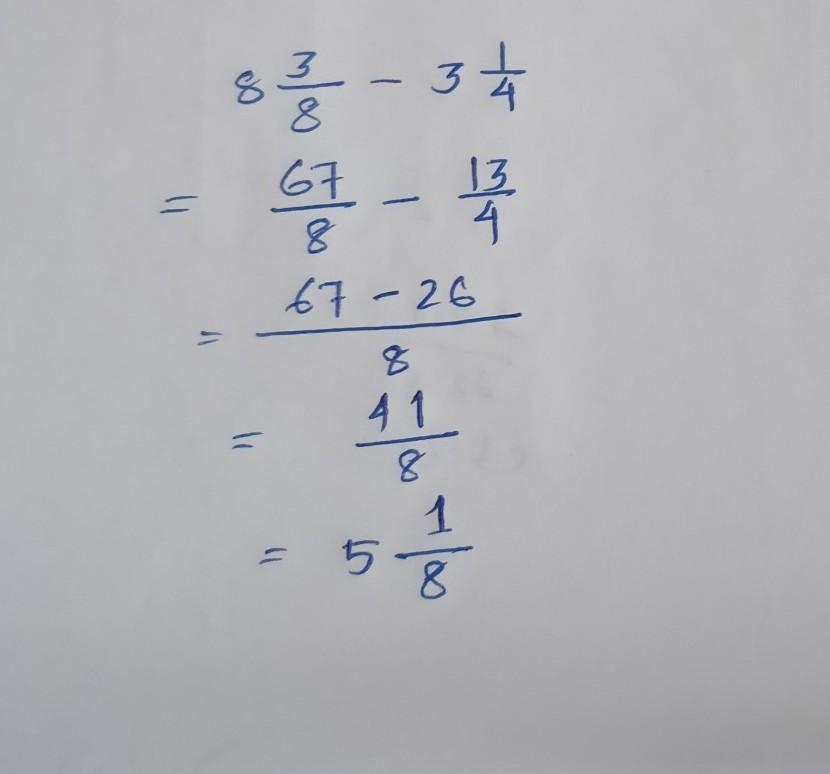 8 3/8 - 3 1/4
= 67/8 - 13/4
= (67 - 26)/8
= 41/8
= 5 1/8